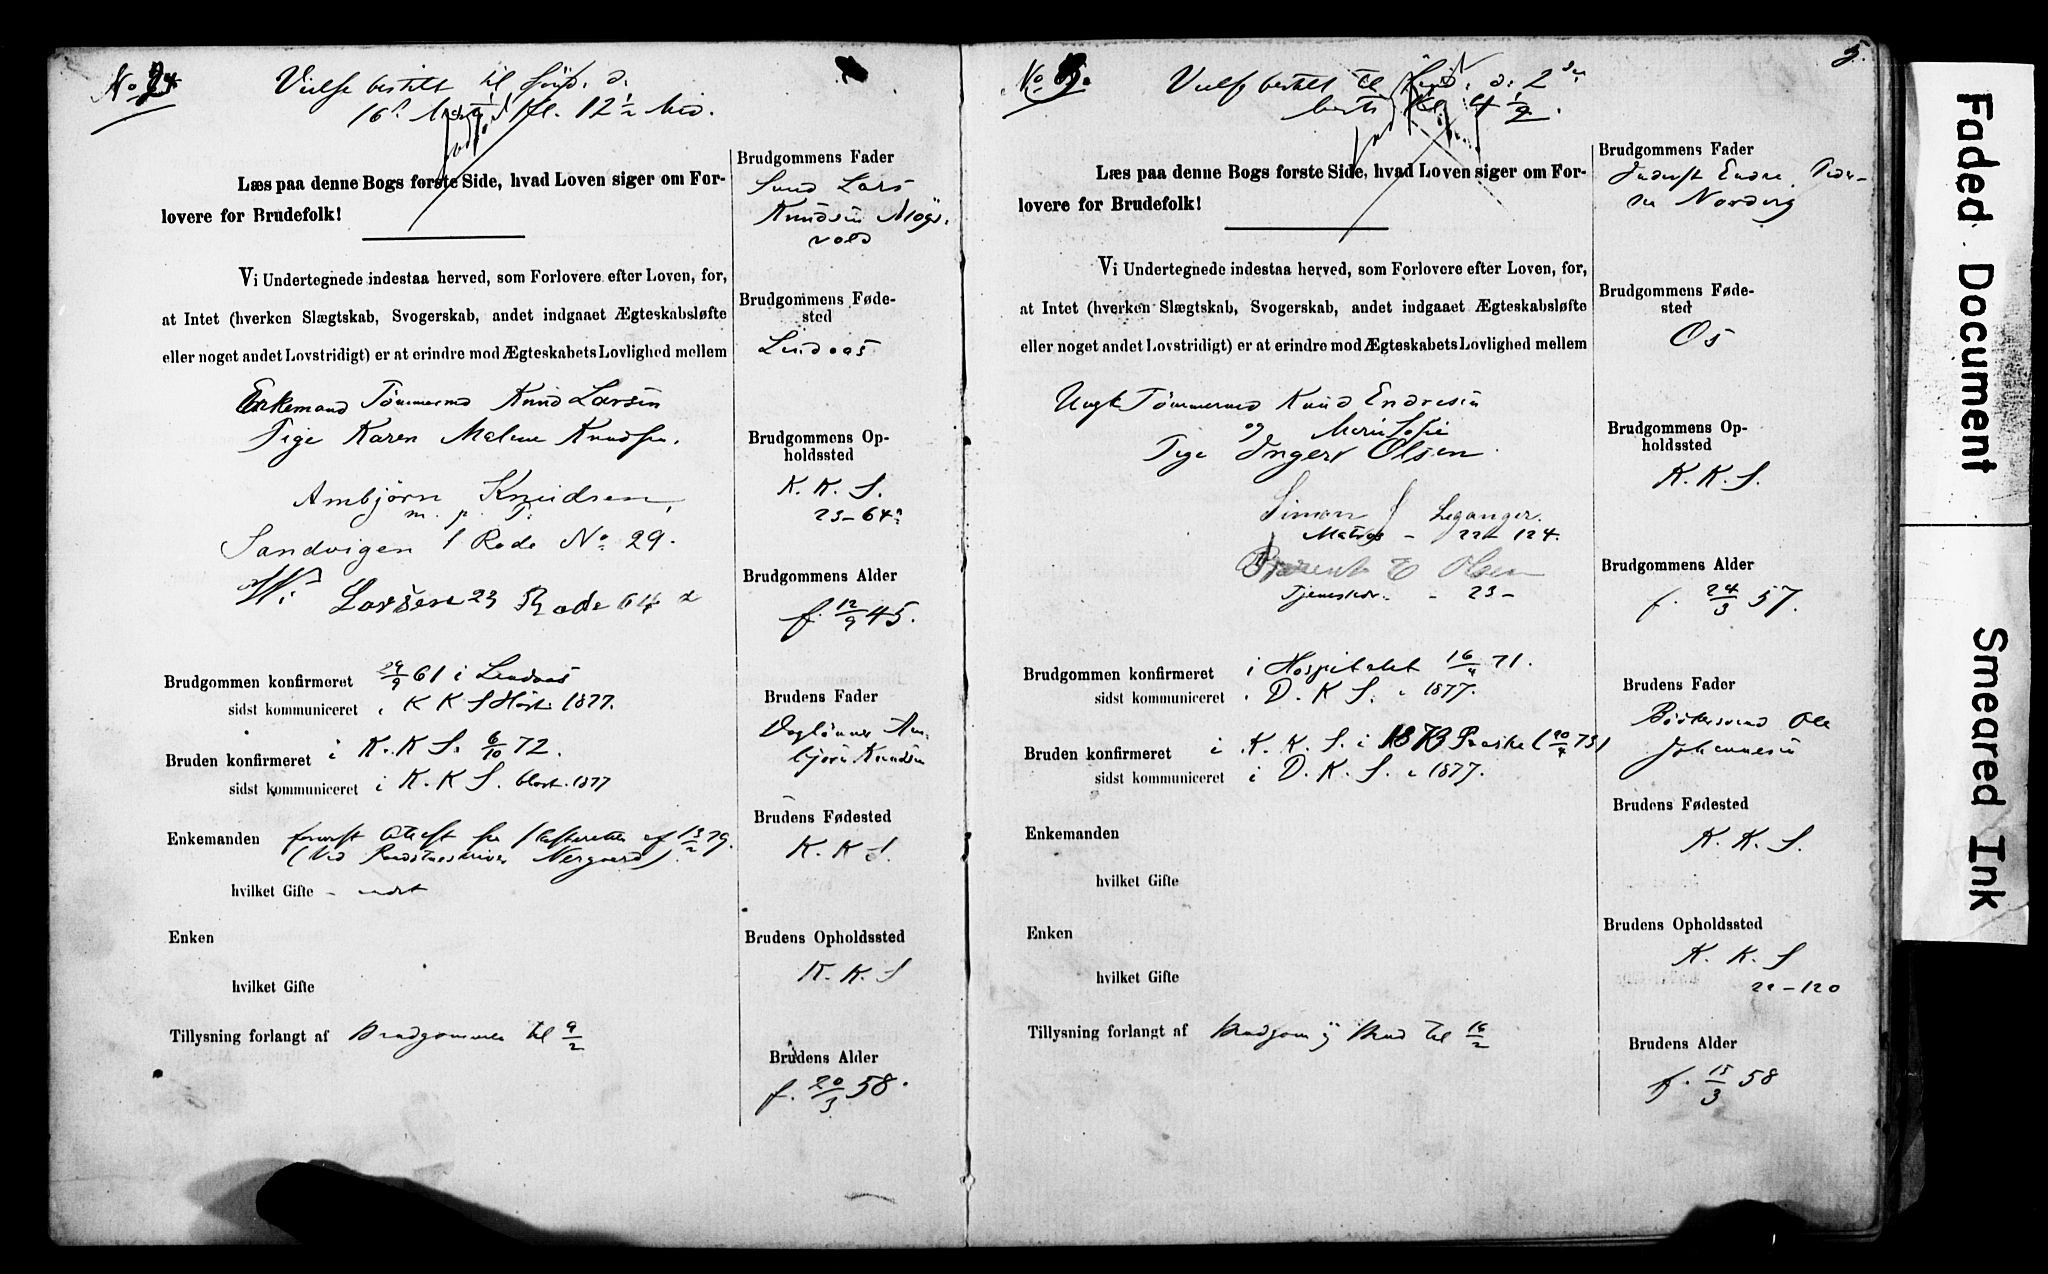 No 24
Vielse bestilt til Sønd. d.
16de Kl. 12 1/2 Mid.
Læs paa denne Bogs første Side, hvad Loven siger om For-
lovere for Brudefolk!
Vi Undertegnede indestaa herved, som Forlovere efter Loven, for,
at Intet (hverken Slægtskab, Svogerskab, andet indgaaet Ægteskabsløfte
eller noget andet Lovstridigt) er at erindre mod Ægteskabets Lovlighed mellem
Enkemand Tømmermd Knud Larsen
Pige Karen Malene Knudsen.
Ambjørn Knudsen,
m. p. P.
Sandvigen 1 Rode No 29.
Larsen 23 Rode 64 a
Brudgommen konfirmeret 29/9 61 i Lindaas
sidst kommuniceret i K K S Høst 1877.
Bruden konfirmeret i K. K S. 6/10 72.
sidst kommuniceret i K. K S. Høst 1877
Enkemanden forevist Attest fra Skifteretten af 13/2 79.
(Ved Raadstueskriver Nergaard).
hvilket Gifte - andet
Enken
hvilket Gifte
Tillysning forlangt af Brudgommen til 9/2
Brudgommens Fader
Lars
Knudsen
BrudgommensFøde-
sted
Lindaas
Brudgommens Op-
holdssted
K. K. S.
23-64a
Brudgommens Alder
f. 12/9 45.
Brudens Fader
Daglønner Am-
bjørn Knudsen
Brudens Fødested
K. K S.
Brudens Opholdssted
K. K. S
Brudens Alder
f. 20/3 58.
5.
No
Vielse bestilt til Sønd. d. 2den
Marts Kl. 4 1/2.
Læs paa denne Bogs første Side, hvad Loven siger om For-
lovere for Brudefolk!
Vi Undertegnede indestaa herved, som Forlovere efter Loven, for,
at Intet (hverken Slægtskab, Svogerskab, andet indgaaet Ægteskabsløfte
eller noget andet Lovstridigt) er at erindre mod Ægteskabets Lovlighed mellem
Ungk Tømmermd Knud Endresen
og Marie Sofie
Pige Inger Olsen.
Simon J Leganger.
Matros - 22 124.
Berent E Olsen
- 23 -
Brudgommen konfirmeret i Hospitalet 16/4 71.
sidst kommuniceret i D. K S. 1877.
Bruden konfirmeret i K. K. S. i 1873 Paaske (20/4 73)
sidst kommuniceret i D. K. S. 1877.
Enkemanden
hvilket Gifte
Enken
hvilket Gifte
Tillysning forlangt af Brudgom og Brud til 16/2
Brudgommens Fader
Inderst Endre Peder-
sen Nordvig
Brudgommens Føde-
sted
Os
Brudgommens Op-
holdssted
K. K. S.
Brudgommens Alder
f. 24/3 57.
Brudens Fader
Bødkersvend Ole
Johannesen
Brudens Fødested
K. K. S.
Brudens Opholdssted
K. K. S
22-120
Brudens Alder
f. 15/3 58
Faded Document
Smeared Ink